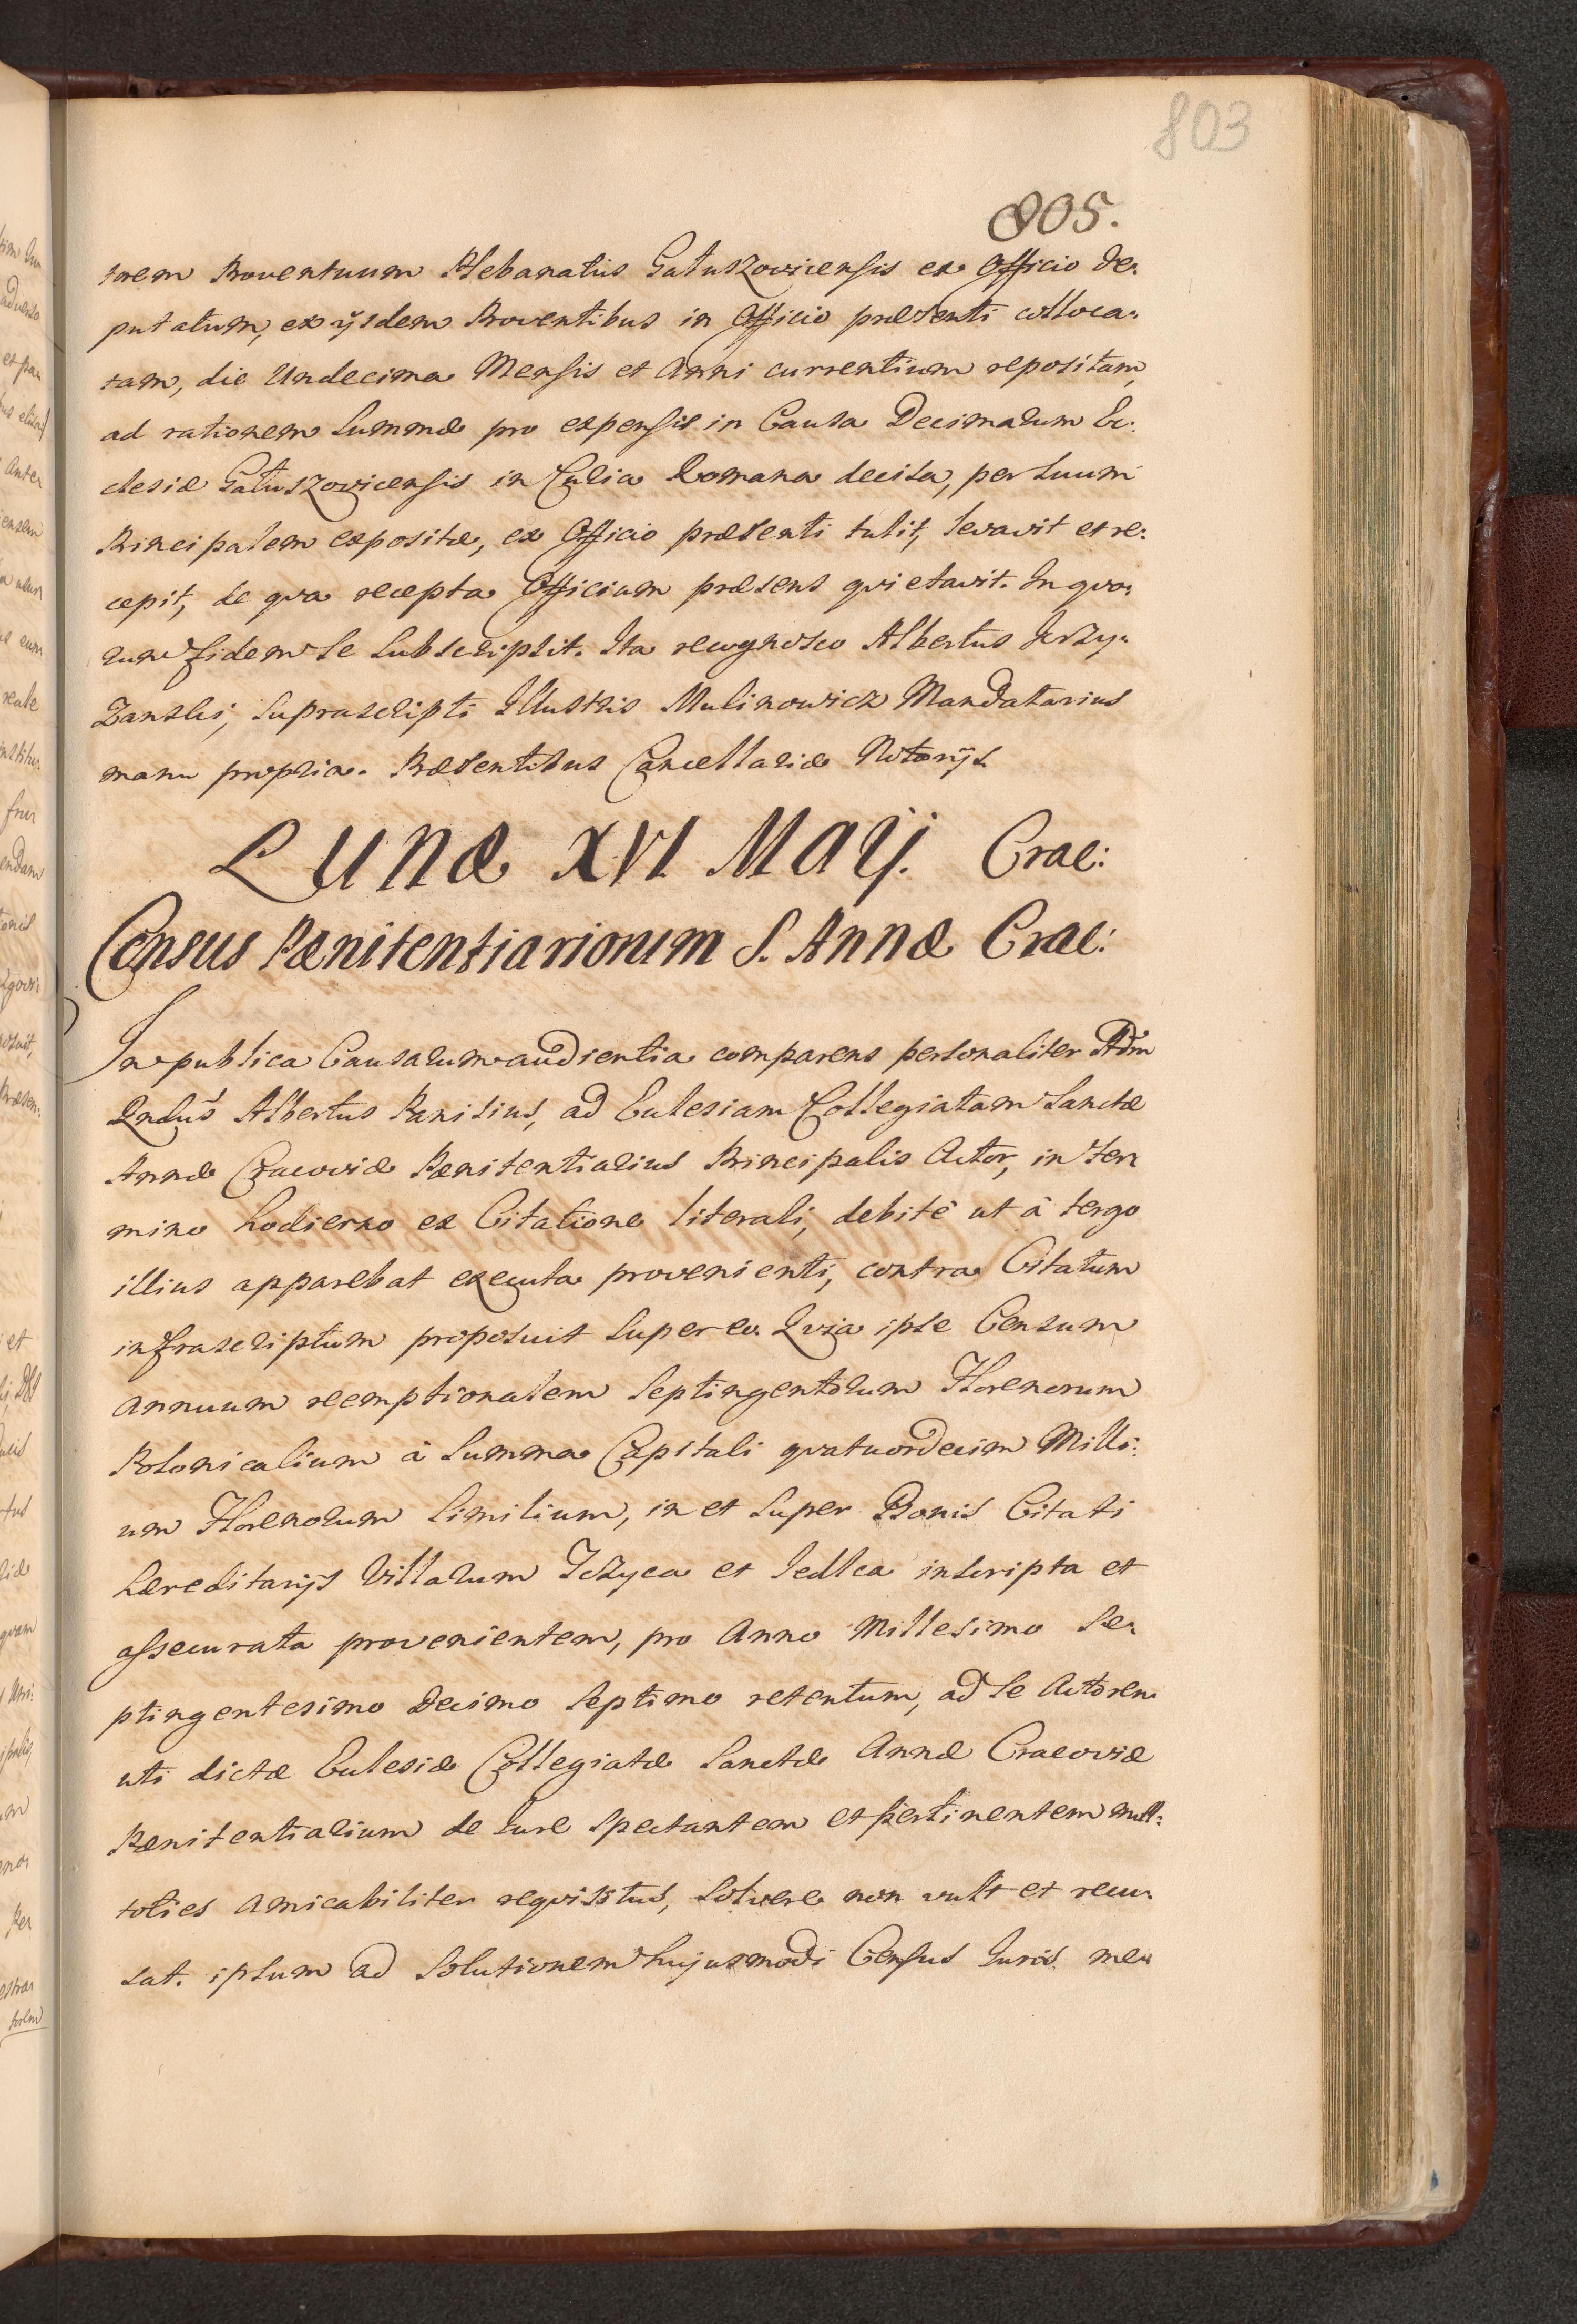 803
805.
torem Proventuum Plebanatus Gałuszoviensis ex Officio de:
putatum, ex ijsdem Proventibus in Officio præsenti colloca:
tam, die Undecima Mensis et Anni currentium repositam,
ad rationem summæ pro expensis in Causa Decimarum Ec:
clesiæ Gałuszovicensis in Curia Romana decisa, per suum
Principalem expositæ, ex Officio præsenti tulit, levavit et re:
cepit, de qva recepta Officium præsens qvietavit. In qvo:
rum fidem se subscripsit. Ita recognosco Albertus Krzy:
zanski, suprascripti Illustris Mulinowicz Mandatarius
manu propria. Præsentibus Cancellariæ Notarijs
Lunæ XVI Maij. Crac:
Census Pænitentiariorum S. Annæ Crac:
In publica Causarum audientia comparens personaliter Adm
Rndus Albertus Panisius, ad Ecclesiam Collegiatam Sanctæ
Annæ Cracoviæ Pænitentiarius Principalis Actor, in Ter:
mino hodierno ex Citatione literali, debitè ut à tergo
illius apparebat executa provenienti, contra Citatum
infrascriptum proposuit super eo. Qvia ipse Censum
annuum reemptionalem Septingentorum Florenorum
Polonicalium à Summa Capitali qvatuordecim Milli:
um Florenorum similium, in et super Bonis Citati
hæreditarijs Villarum et inscripta et
assecurata provenientem, pro Anno Millesimo Se:
ptingentesimo Decimo Septimo retentum, ad se Actorem
uti dictæ Ecclesiæ Collegiatæ Sanctæ Annæ Cracoviæ
Pænitentiarium de Iure spectantem et pertinentem mul:
toties amicabiliter reqvisitus, solvere non vult et recu:
sat. ipsum ad solutionem hujusmodi Census Iuris me: